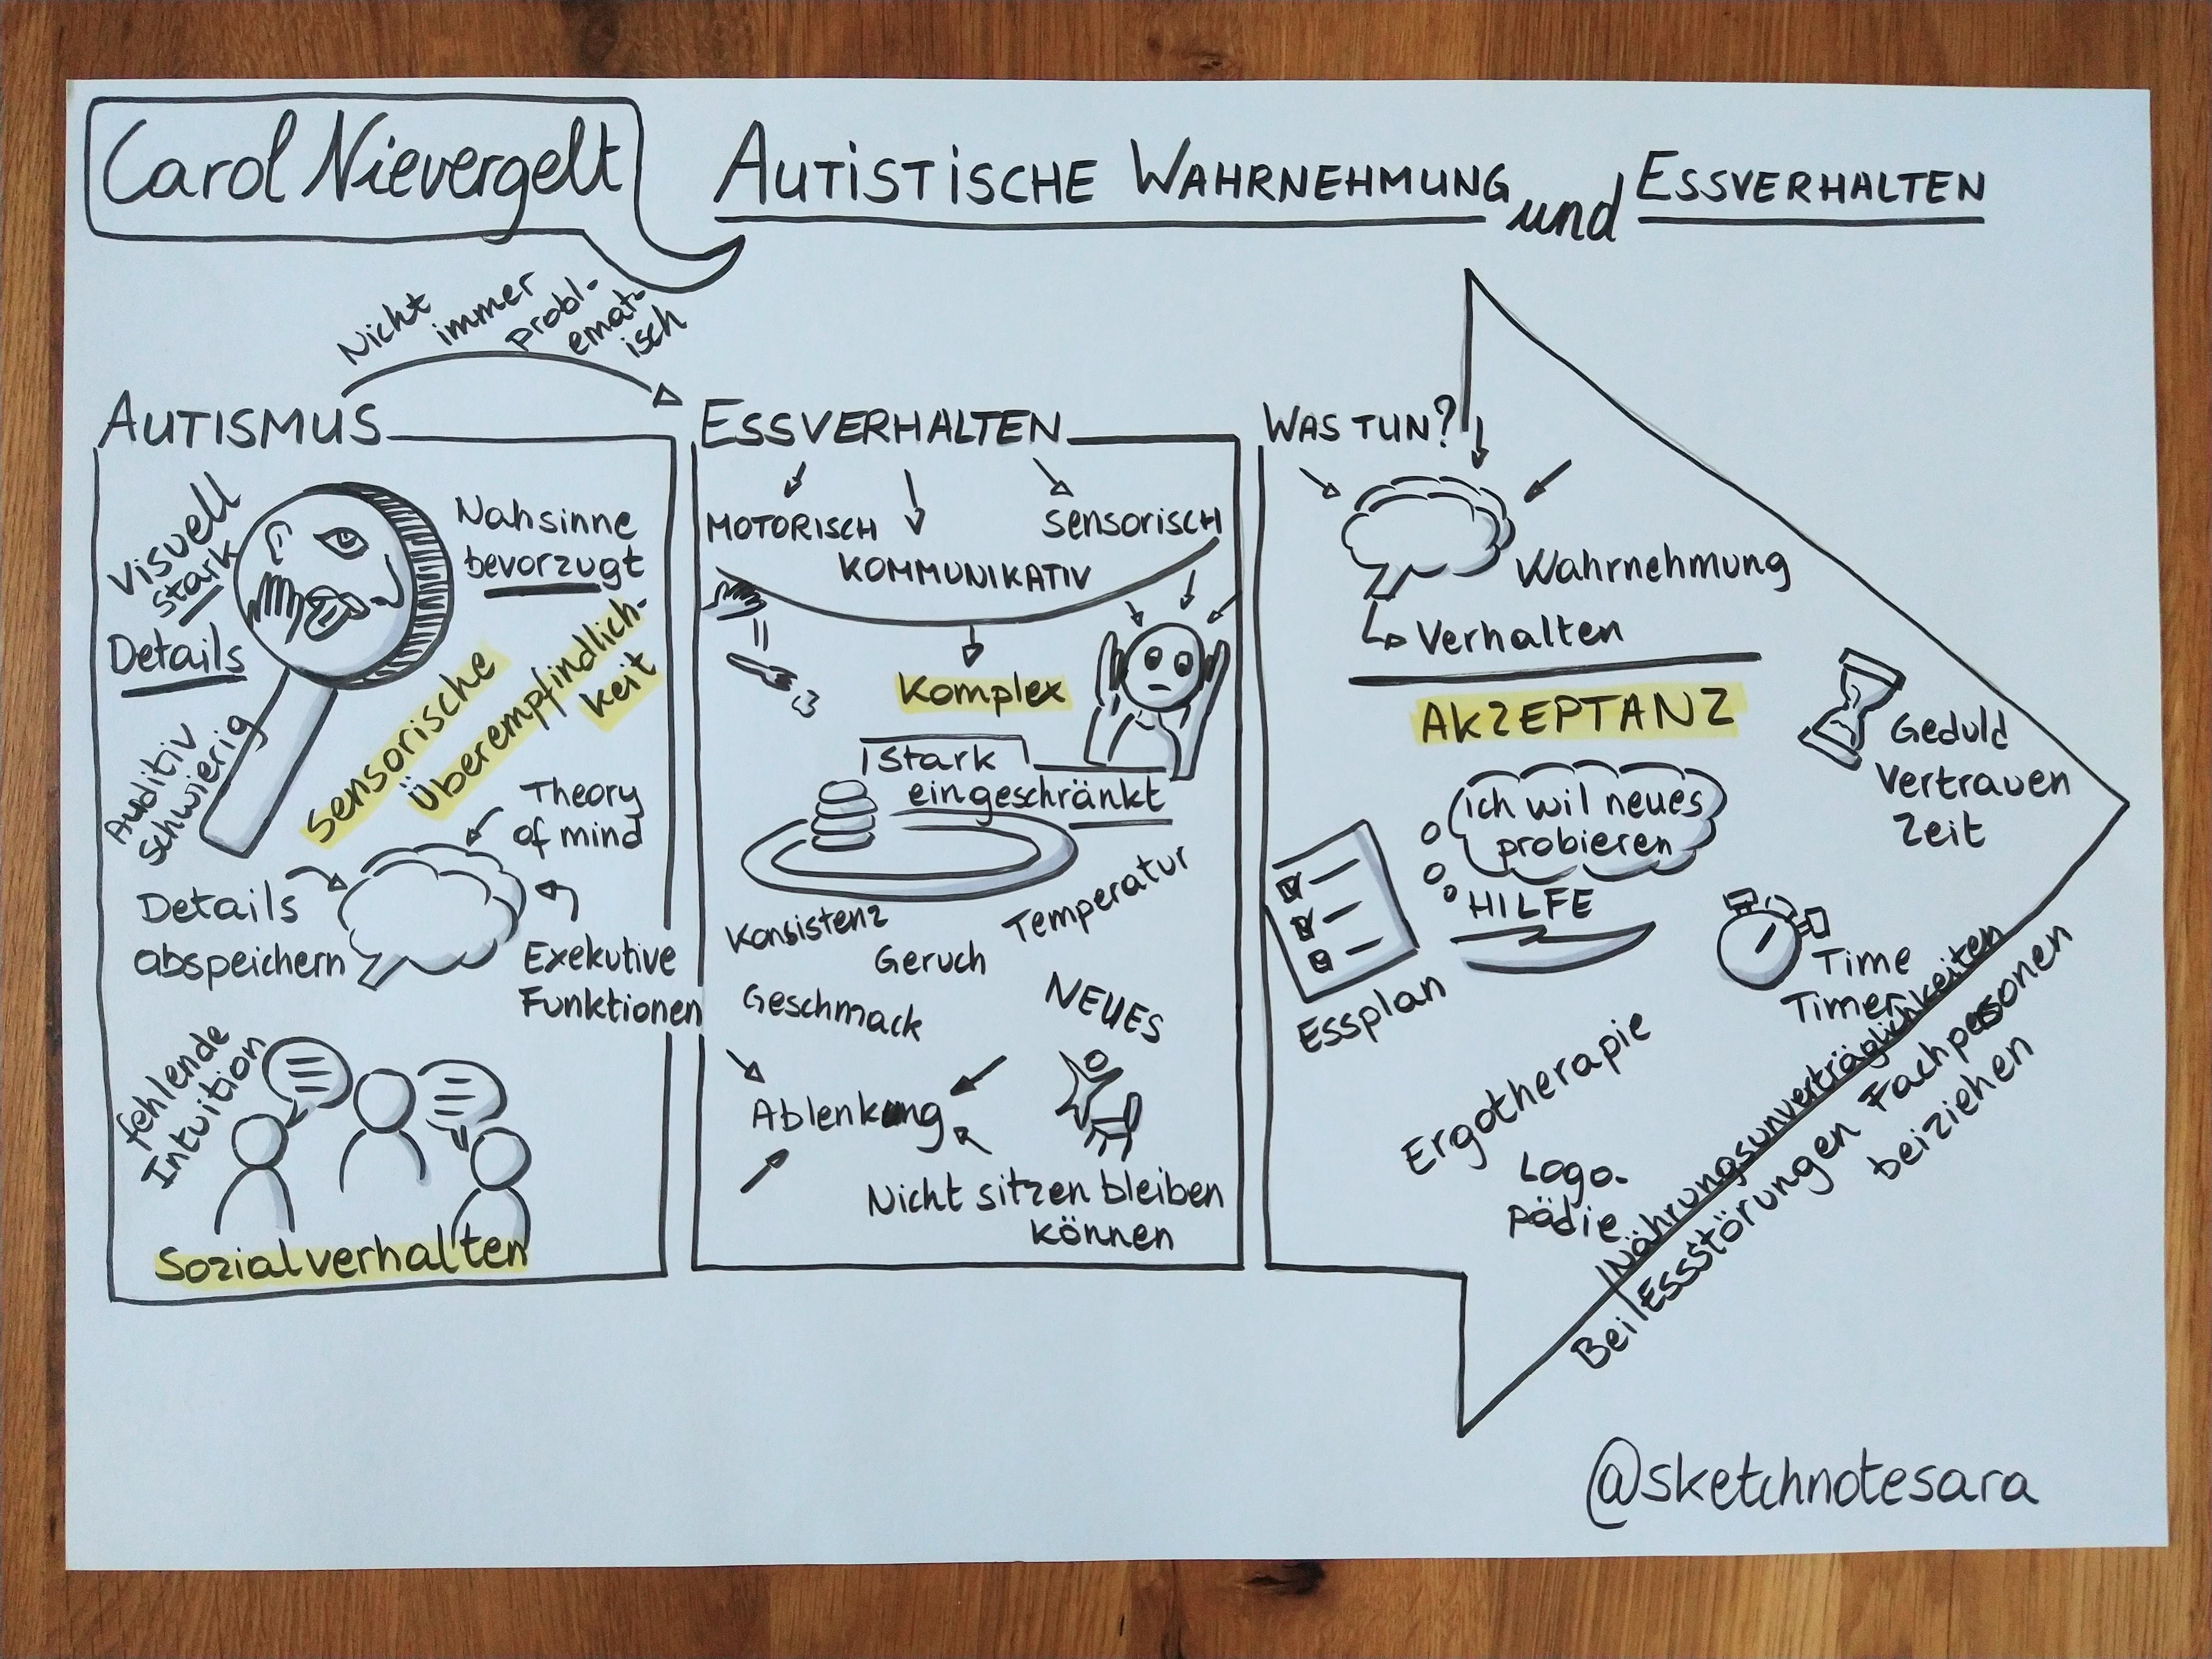 Carol Nievergelt
AUTISTISCHE WAHRNEHMUNG und ESSVERHALTEN
Nicht
immer
probl-
emat-
isch
AUTISMUS
Visuell
stark
Details
Nahsinne
bevorzugt
Sensorische
Überempfindlich-
keit
Auditiv
schwierig
Theory
of mind
Details
abspeichern
Exekutive
Funktionen
fehlende
Intuition
Sozialverhalten
ESSVERHALTEN
MOTORISCH
KOMMUNIKATIV
sensorisch
Komplex
stark
eingeschränkt
Konsistenz
Geruch
Temperatur
Geschmack
NEUES
Ablenkung
Nicht sitzen bleiben
können
WAS TUN?
Wahrnehmung
Verhalten
AKZEPTANZ
Geduld
Vertrauen
Zeit
ich wil neues
probieren
HILFE
Essplan
Time
Timer
Ergotherapie
Logo-
pädie
Nährungsunverträglichkeiten
Bei Essstörungen Fachpersonen
beiziehen
@sketchnotesara